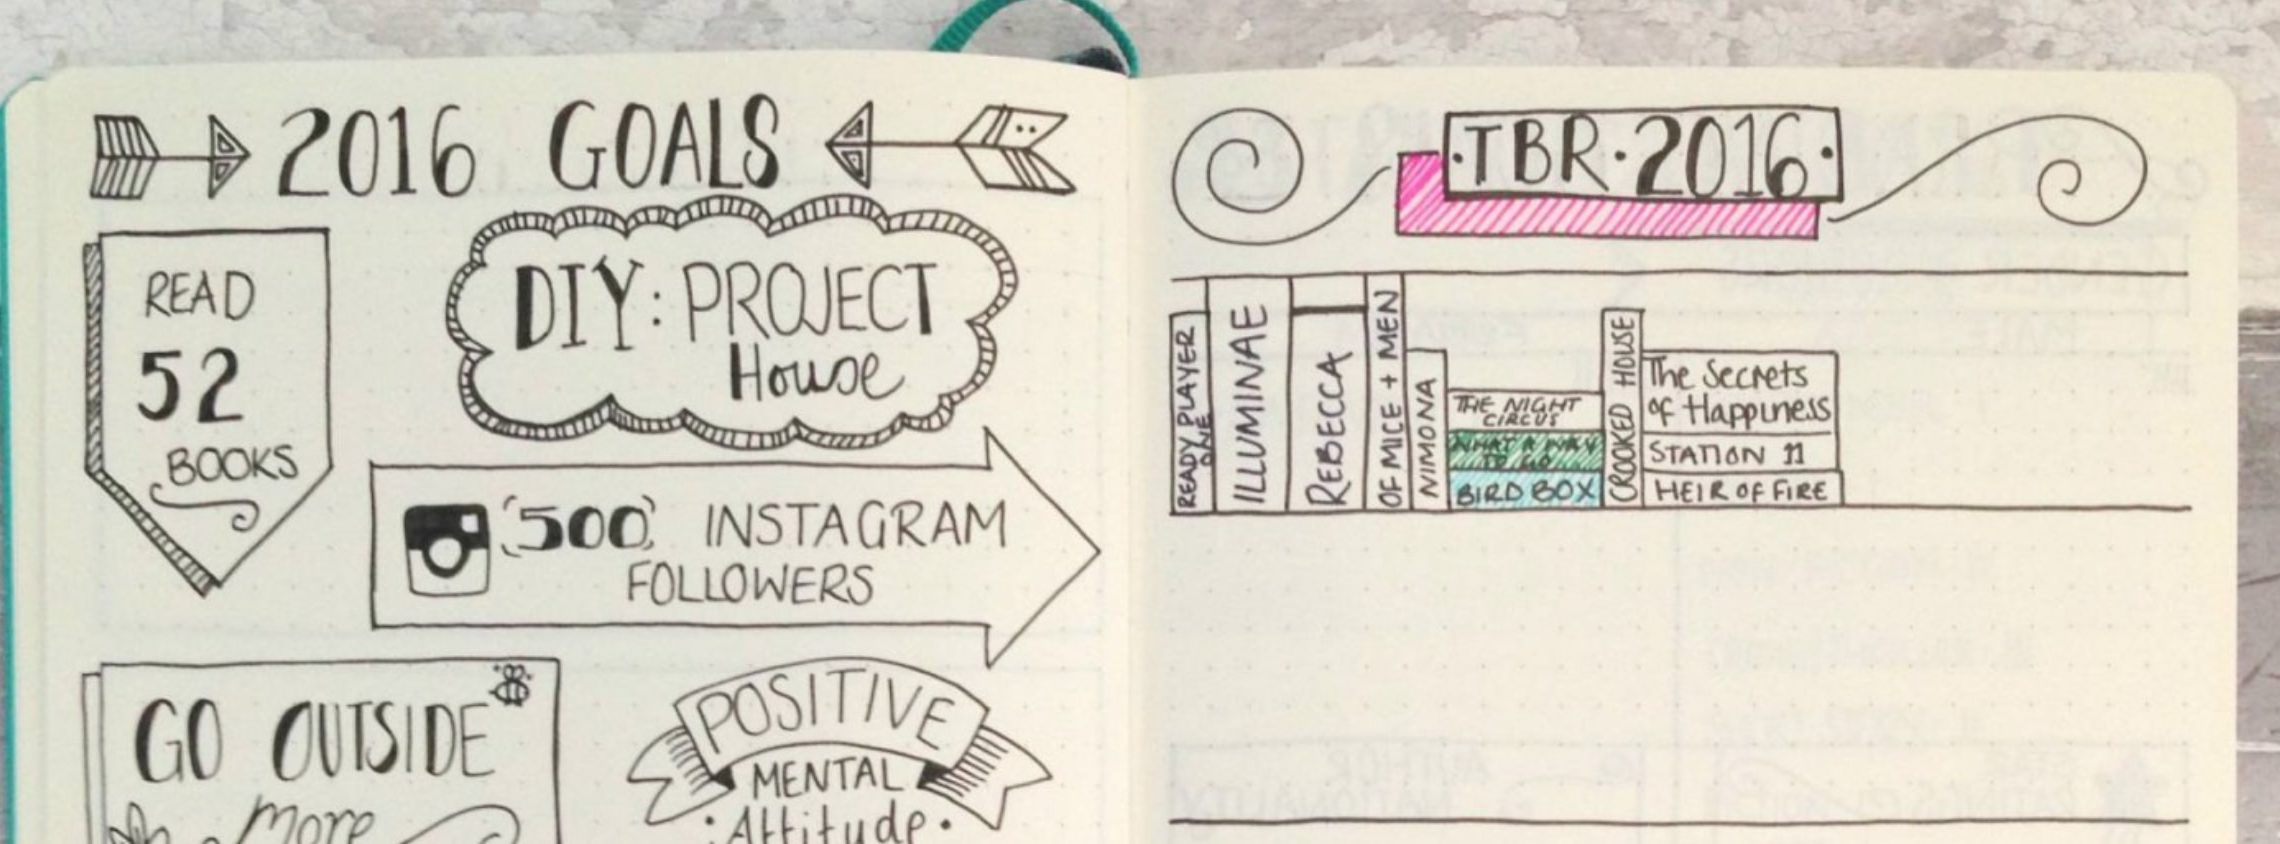 2016 GOALS
READ
52
BOOKS
DIY: PROJECT
House
500 INSTAGRAM
FOLLOWERS
GO OUTSIDE
More
POSITIVE
MENTAL
Attitude
·TBR·2016·
READY PLAYER
ONE
ILLUMINAE
REBECCA
OF MICE + MEN
NIMONA
THE NIGHT
CIRCUS
WHAT A WAY
TO GO
BIRD BOX
CROOKED HOUSE
The Secrets
of Happiness
STATION 11
HEIR OF FIRE